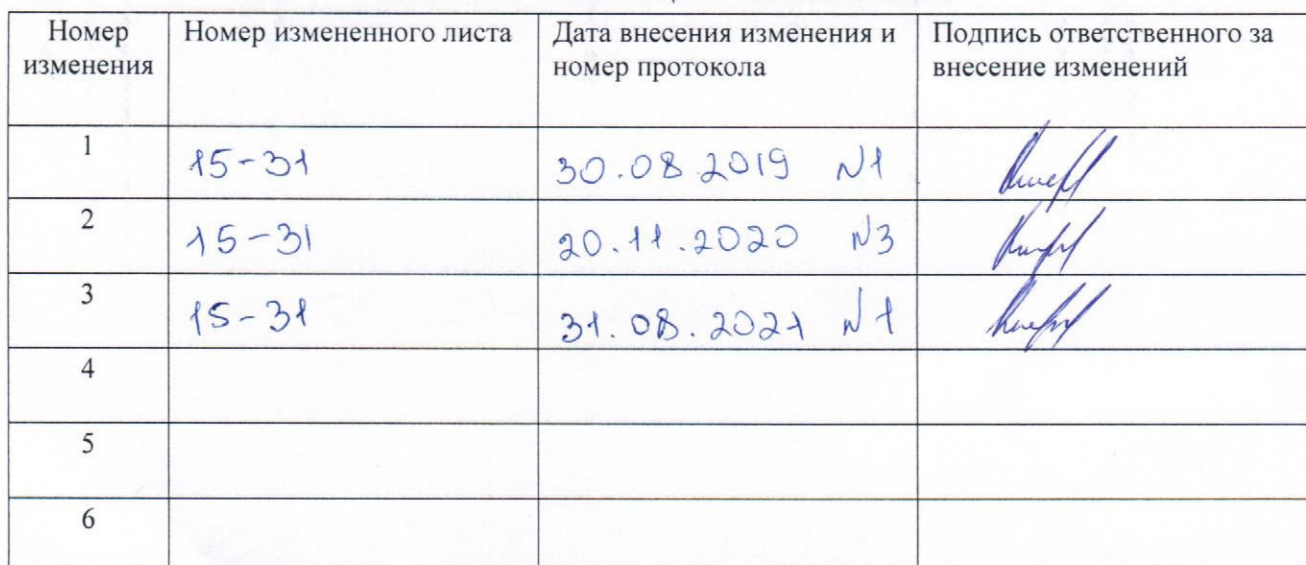 Номер изменения Номер измененного листа Дата внесения изменения и номер протокола Подпись ответственного за внесение изменений
1 15-31 30.08.2019 N1
2 15-31 20.11.2020 N3
3 15-31 31.08.2021 N1
4
5
6